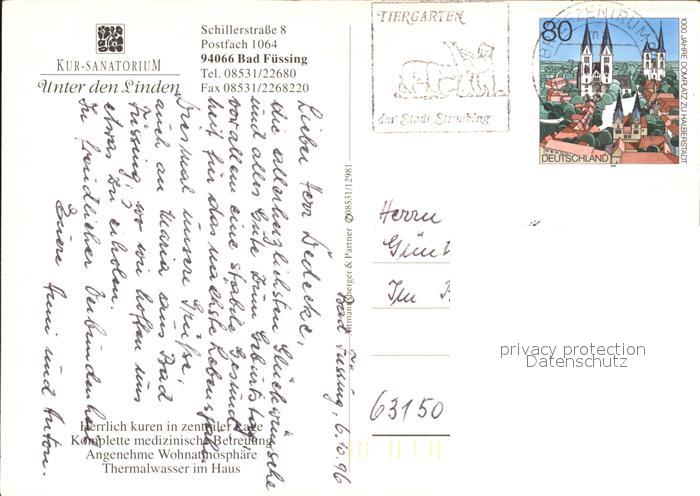 KUR-SANATORIUM
Unter den Linden
Schillerstraße 8
Postfach 1064
94066 Bad Füssing
Tel. 08531/22680
Fax 08531/2268220
TIERGARTEN
der Stadt Straubing
BRIEFZENTRUM
80
1000 JAHRE DOMPLATZ ZU HALBERSTADT
DEUTSCHLAND
Bad Füssing, 6.10.96
Lieber Herr Dedecke,
die allerherzlichsten Glückwünsche
und alles Gute zum Geburtstag,
vor allem eine stabile Gesund-
heit für das nächste Lebensjahr.
Diesmal unsere Grüße,
auch an Maria aus Bad
Füssing, wo wir hoffen uns
etwas zu erholen.
In freundlicher Verbundenheit
Euere Anni und Anton.
& Partner ✆08531/12981
Herrn
Günt
Im
63150
privacy protection
Datenschutz
Herrlich kuren in zentraler Lage
Komplette medizinische Betreuung
Angenehme Wohnatmosphäre
Thermalwasser im Haus